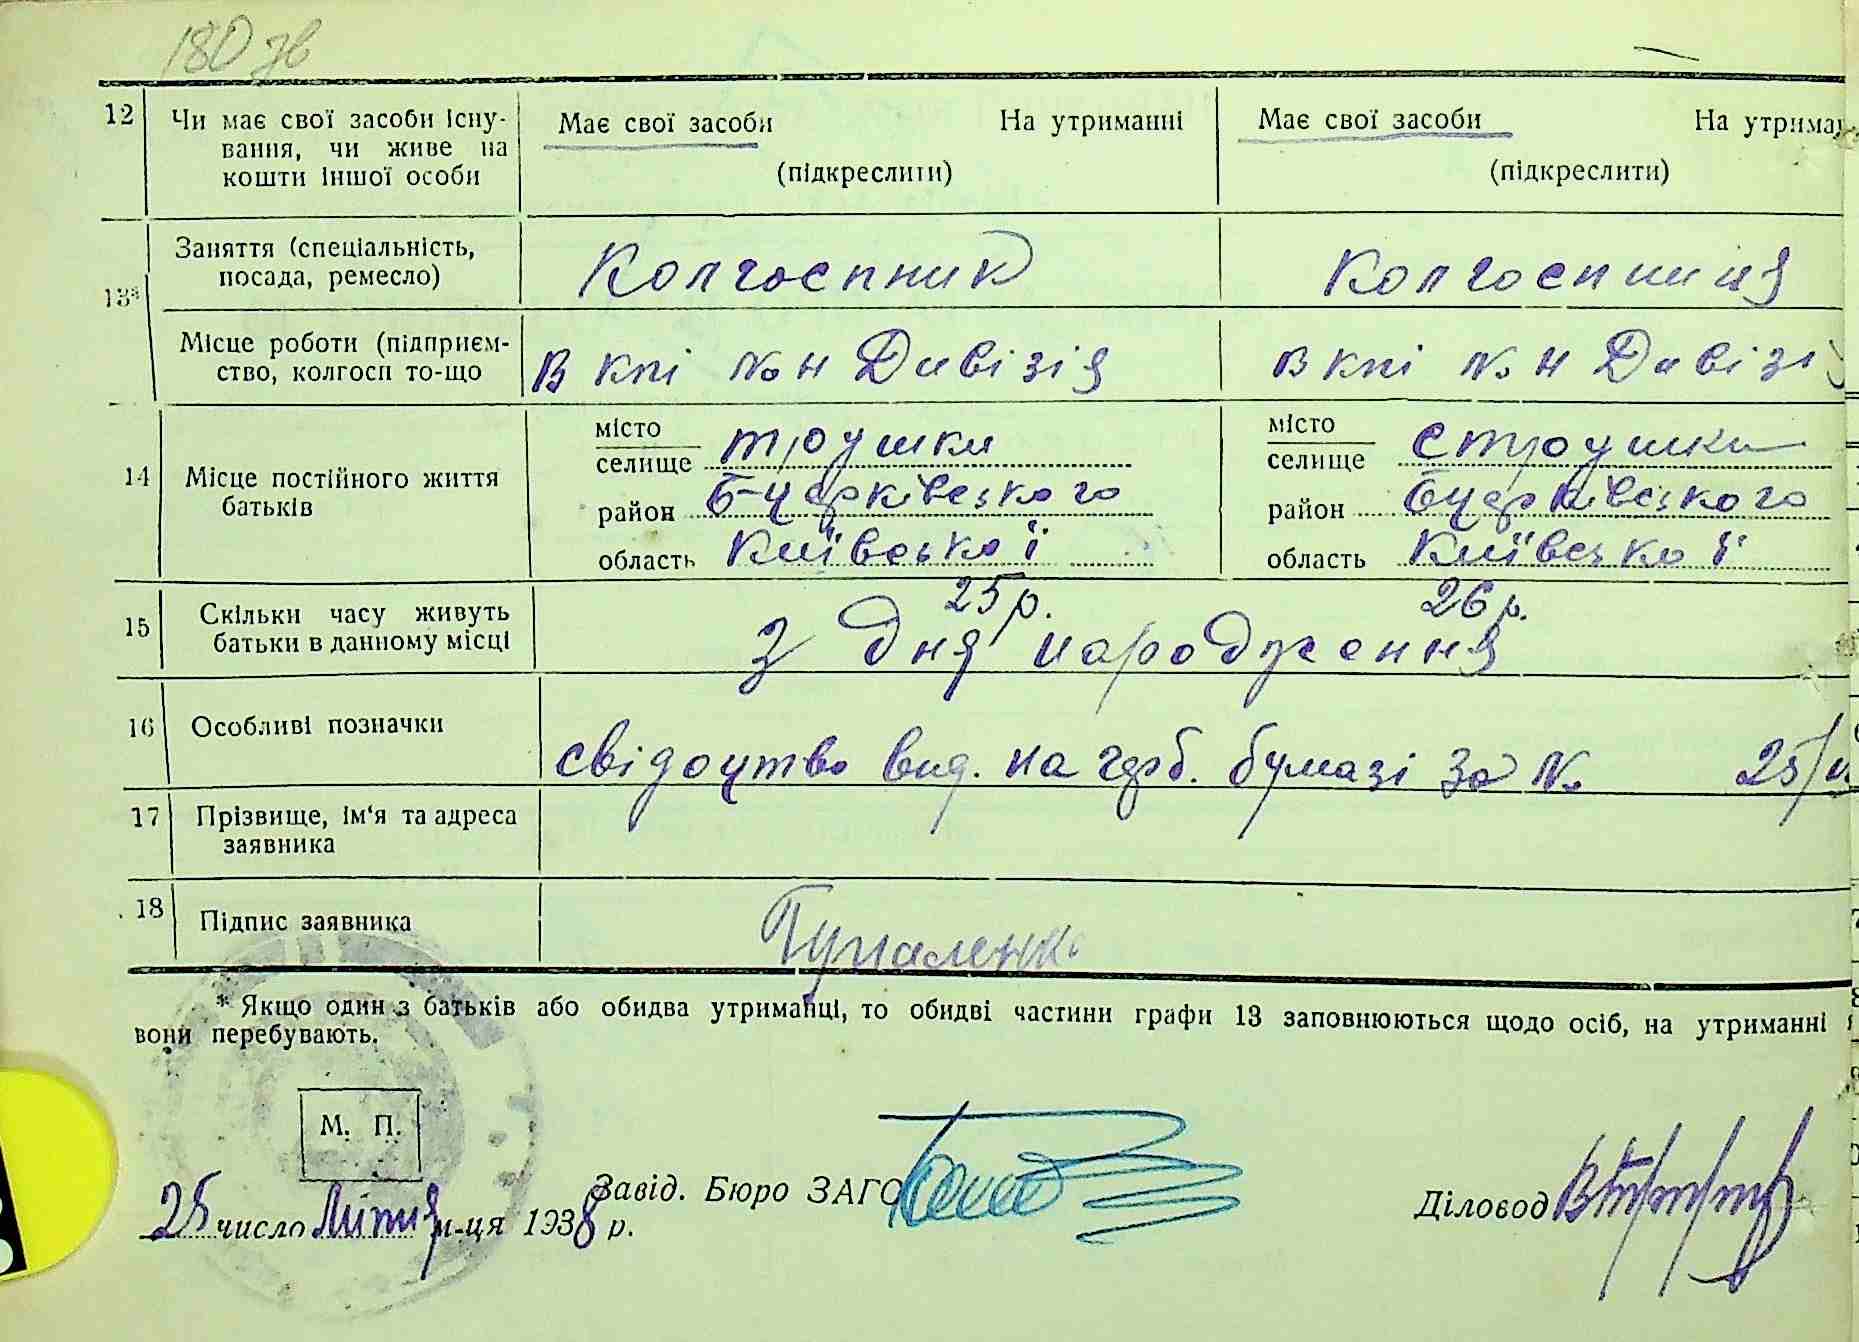 180 зв
12 Чи має свої засоби існу- Має свої засоби На утриманні Має свої засоби На утрима
вання, чи живе на
кошти іншої особи (підкреслити) (підкреслити)
Заняття (спеціальність, Колгоспник Колгоспниця
посада, ремесло)
13*
Місце роботи (підприєм- В кпі № Н Дивізія В кпі № Н Дивізі
ство, колгосп то-що
місто трушки місто с трушки
14 Місце постійного життя селище селище
батьків район Б-церківського район Бцерківського
область Київської область Київської
25 р. 26 р.
15 Скільки часу живуть З дня народження
батьки в данному місці
16 Особливі позначки свідоцтво вид. на герб. бумазі за № 25/
17 Прізвище, ім'я та адреса
заявника
18 Підпис заявника
* Якщо один з батьків або обидва утриманці, то обидві частини графи 13 заповнюються щодо осіб, на утриманні
вони перебувають.
М. П.
Завід. Бюро ЗАГС Діловод
25 число Липня м-ця 1938 р.